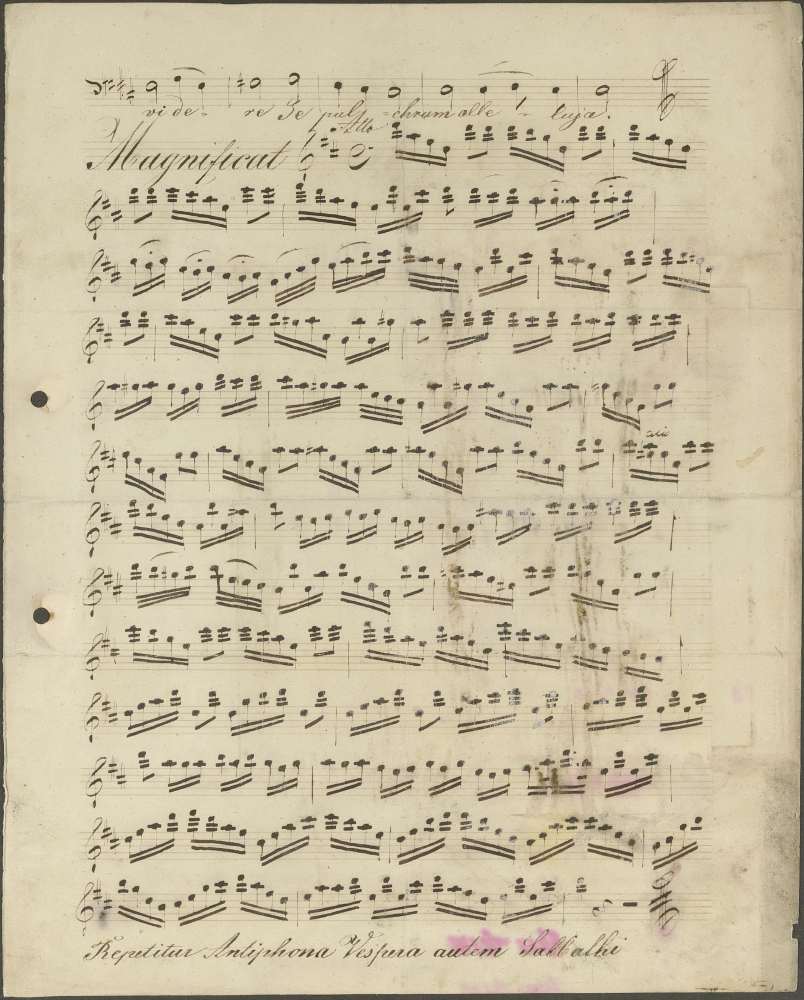 vide- re Se pul- =chrum alle - luja.
Allo
Magnificat
Repetitur Antiphona Vespera autem Sabbathi